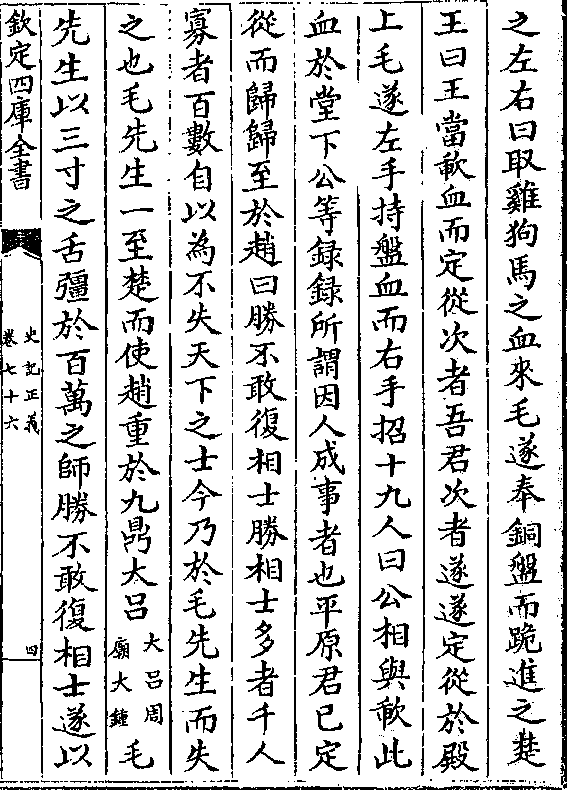 之左右曰取雞狗馬之血來毛遂奉銅盤而跪進之楚
王曰王當歃血而定從次者吾君次者遂遂定從於殿
上毛遂左手持盤血而右手招十九人曰公相與歃此
血於堂下公等録録所謂因人成事者也平原君已定
從而歸歸至於趙曰勝不敢復相士勝相士多者千人
寡者百數自以為不失天下之士今乃於毛先生而失
之也毛先生一至楚而使趙重於九鼎大吕大吕周廟大鐘毛
先生以三寸之舌彊於百萬之師勝不敢復相士遂以
欽定四庫全書
史記正義
卷七十六
四